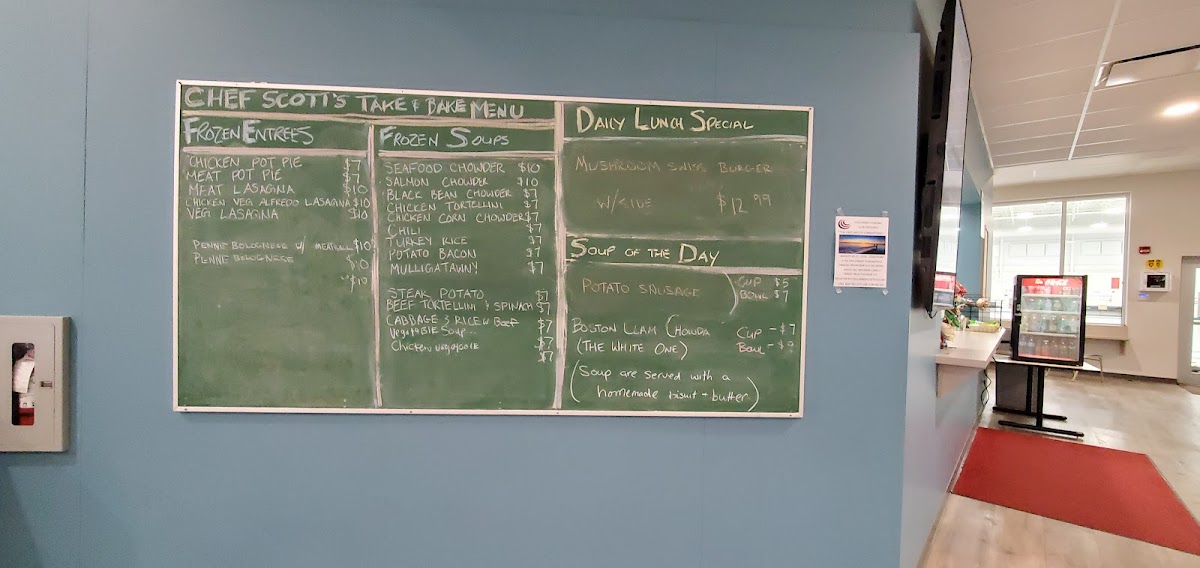 CHEF SCOTT'S TAKE & BAKE MENU
FROZEN ENTREES
CHICKEN POT PIE $7
MEAT POT PIE $7
MEAT LASAGNA $10
CHICKEN VEG ALFREDO LASAGNA $10
VEG LASAGNA $10
PENNE BOLOGNESE W/ MEATBALL $10
PENNE BOLOGNESE $10
$10
FROZEN SOUPS
SEAFOOD CHOWDER $10
SALMON CHOWDER $10
BLACK BEAN CHOWDER $7
CHICKEN TORTELLINI $7
CHICKEN CORN CHOWDER $7
CHILI $7
TURKEY RICE $7
POTATO BACON $7
MULLIGATAWNY $7
STEAK POTATO $7
BEEF TORTELLINI & SPINACH $7
CABBAGE & RICE W Beef $7
VegetaBLE Soup $7
Chicken $7
DAILY LUNCH SPECIAL
MUSHROOM SWISS BURGER
W/SIDE $12.99
SOUP OF THE DAY
POTATO SAUSAGE
CUP $5
BOWL $7
BOSTON CLAM CHOWDA CUP - $7
(THE WHITE ONE) BOWL - $9
(Soup are served with a
homemade biscuit - butter)